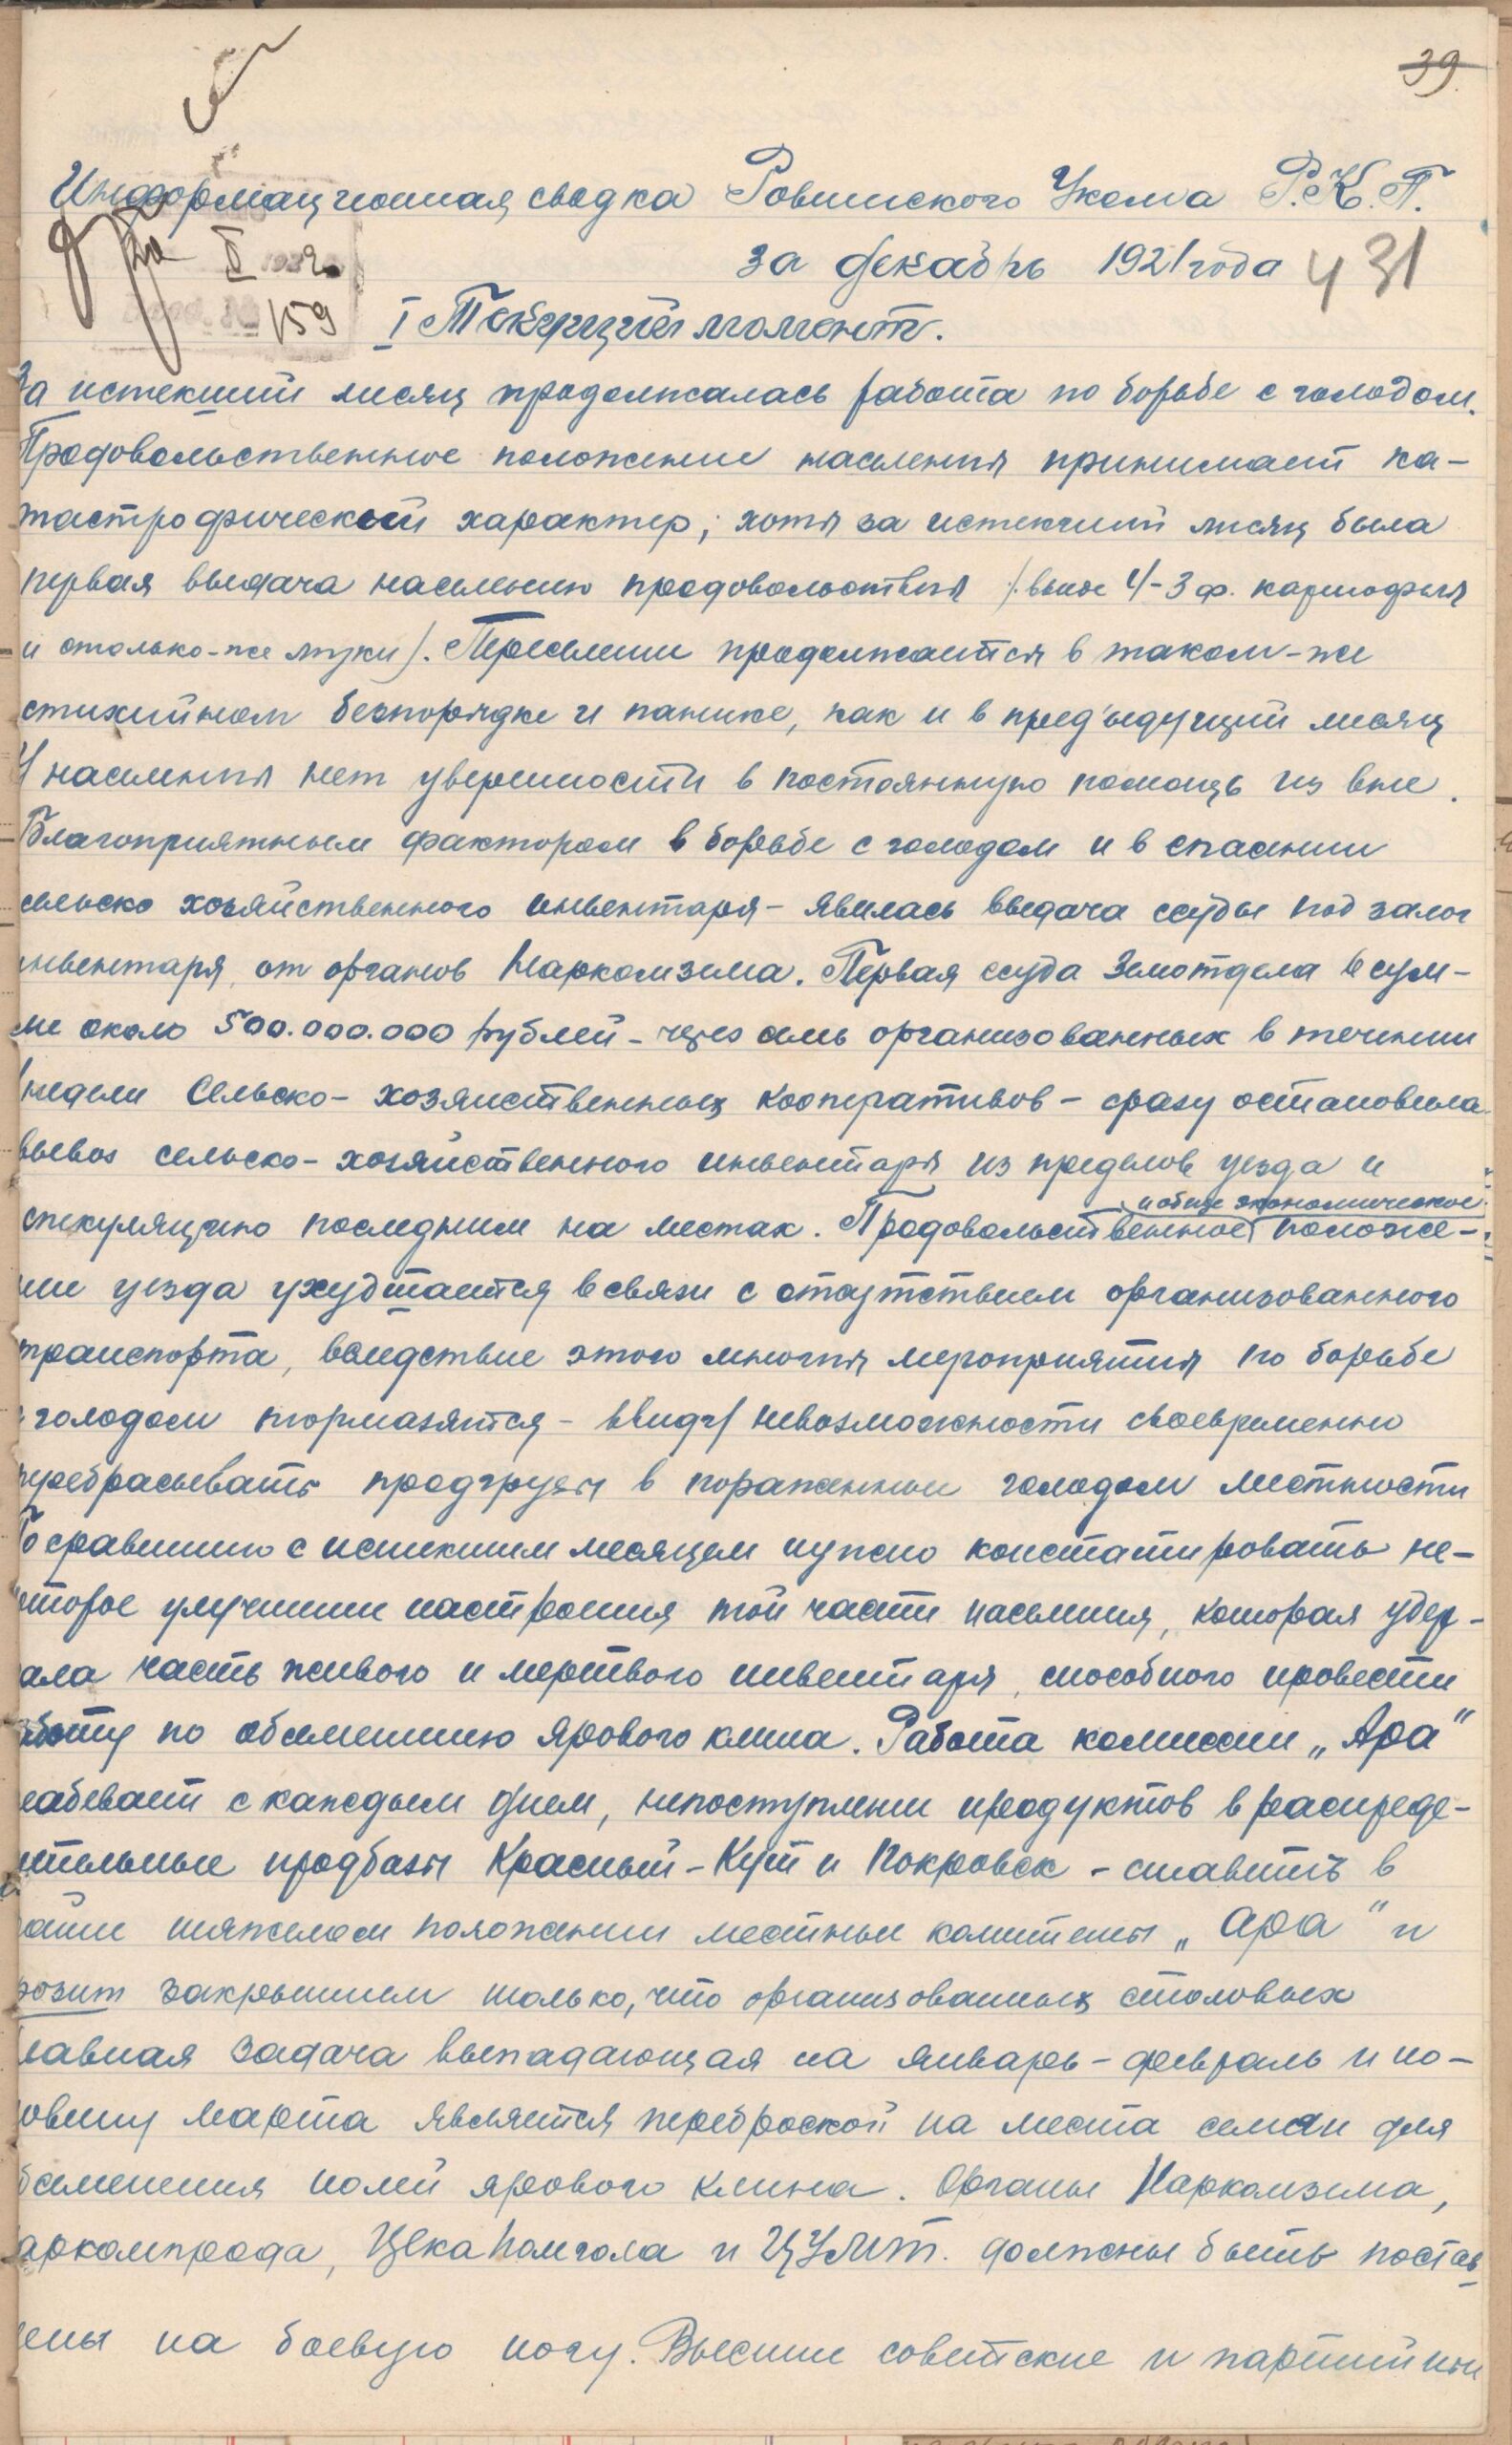 39.
Информационная сводка Ровенского Укома Р.К.П.
за декабрь 1921 года
431
II 1922
159
I Текущий момент.
За истекший месяц продолжалась работа по борьбе с голодом.
Продовольственное положение населения принимает ка-
тастрофический характер; хотя за истекший месяц была
первая выдача населению продовольствия 4-3 ф. картофеля
и столько-же муки). Переселение продолжается в таком-же
стихийном беспорядке и панике, как и в пред'идущий месяц
У населения нет уверенности в постоянную помощь из вне.
Благоприятным фактором в борьбе с голодом и в спасении
сельско хозяйственного инвентаря - явилась выдача ссуды под залог
инвентаря, от органов Наркомзема. Первая ссуда Земотдела в сум-
ме около 500.000.000 рублей - через семь организованных в течении
недели Сельско-хозяйственных кооперативов - сразу остановила
вывоз сельско-хозяйственного инвентаря из пределов уезда и
спекуляцию последним на местах. Продовольственное и обще экономическое положе-
ние уезда ухудшается в связи с отсутствием организованного
транспорта, вследствие этого многия мероприятия по борьбе
с голодом тормазятся - ввиду невозможности своевременно
перебрасывать продгрузы в пораженные голодом местности
По сравнению с истекшим месяцем нужно констатировать не-
которое улучшение настроения той части населения, которая удер-
ала часть живого и мертвого инвентаря, способного провести
работу по обсеменению ярового клина. Работа комиссии „Ара"
слабевает с каждым днем, непоступление продуктов в распреде-
лительные продбазы Красный-Кут и Покровск - ставить в
крайне тяжелом положении местные комитеты „Ара" и
грозит закрытием только, что организованных столовых
Главная задача выпадающая на январь-февраль и по-
ловину марта является переброской на места семян для
обсеменения полей ярового клина. Органы Наркомзема,
Наркомпрода, Цека Помгола и ЦУМТ. должны быть постав
лены на боевую ногу. Высшие советские и партийные